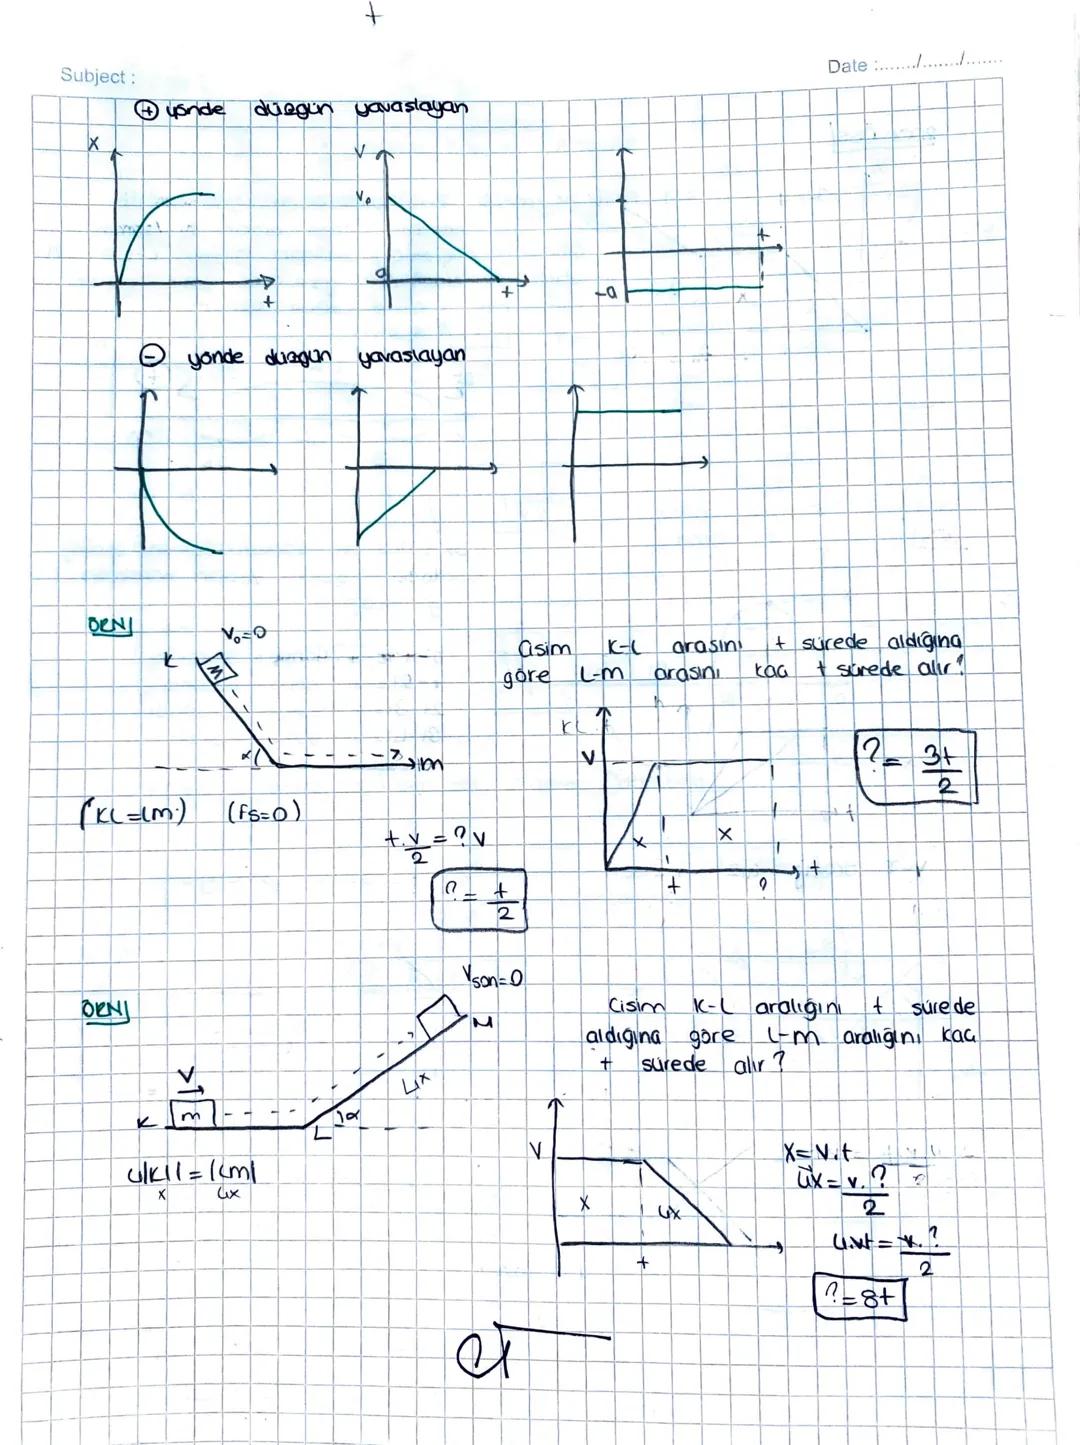 Subject :
Date :......../......../........
+
⊕ yönde düzgün yavaslayan
x
t
v
v₀
0
t
t
-a
⊖ yönde düzgün yavaslayan
ÖRN/
V₀=0
K
M
α
m
Cisim K-L arasını t sürede aldığına
göre L-m arasını kaç t sürede alır?
(KL=Lm) (fs=0)
V
x
x
t
?
t
?= 3t/2
t.v/2=?v
?= t/2
ÖRN/
Vson=0
M
4x
V
K
m
L
α
4|KL|=|Lm|
x 4x
Cisim K-L aralığını t sürede
aldığına göre L-m aralığını kaç
t sürede alır?
V
x
4x
t
x=v.t
4x=v.?/2
4.vt=v.?/2
?=8t